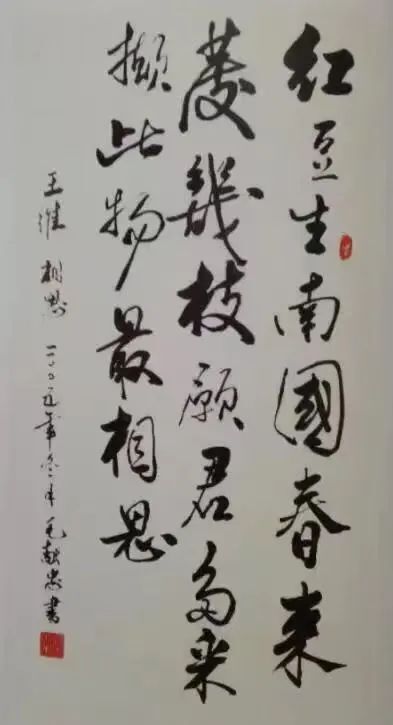 红豆生南國春来
發幾枝願君多采
撷此物最相思
王維 相思 二〇〇九年冬月 毛献忠書